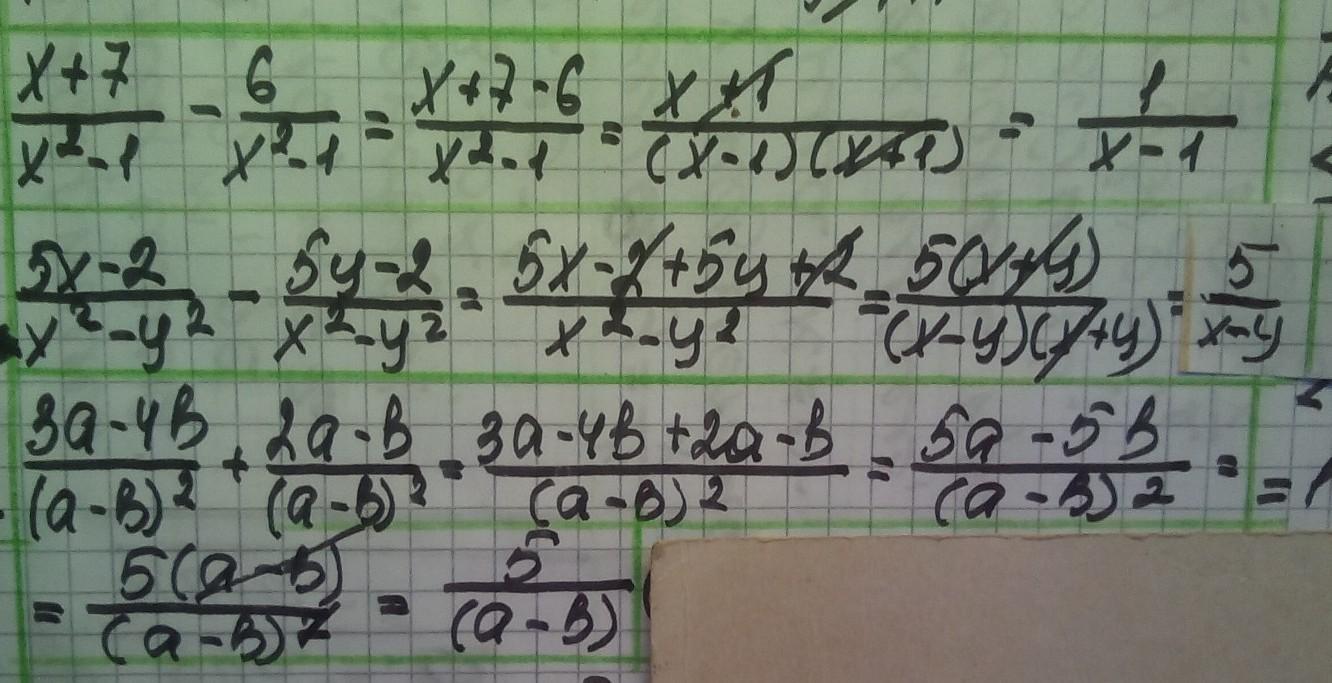 (x+7)/(x²-1) - 6/(x²-1) = (x+7-6)/(x²-1) = (x+1)/((x-1)(x+1)) = 1/(x-1)
(5x-2)/(x²-y²) - (5y-2)/(x²-y²) = (5x-2+5y+2)/(x²-y²) = 5(x+y)/((x-y)(x+y)) = 5/(x-y)
(3a-4b)/(a-b)² + (2a-b)/(a-b)² = (3a-4b+2a-b)/(a-b)² = (5a-5b)/(a-b)² =
= 5(a-b)/(a-b)² = 5/(a-b)